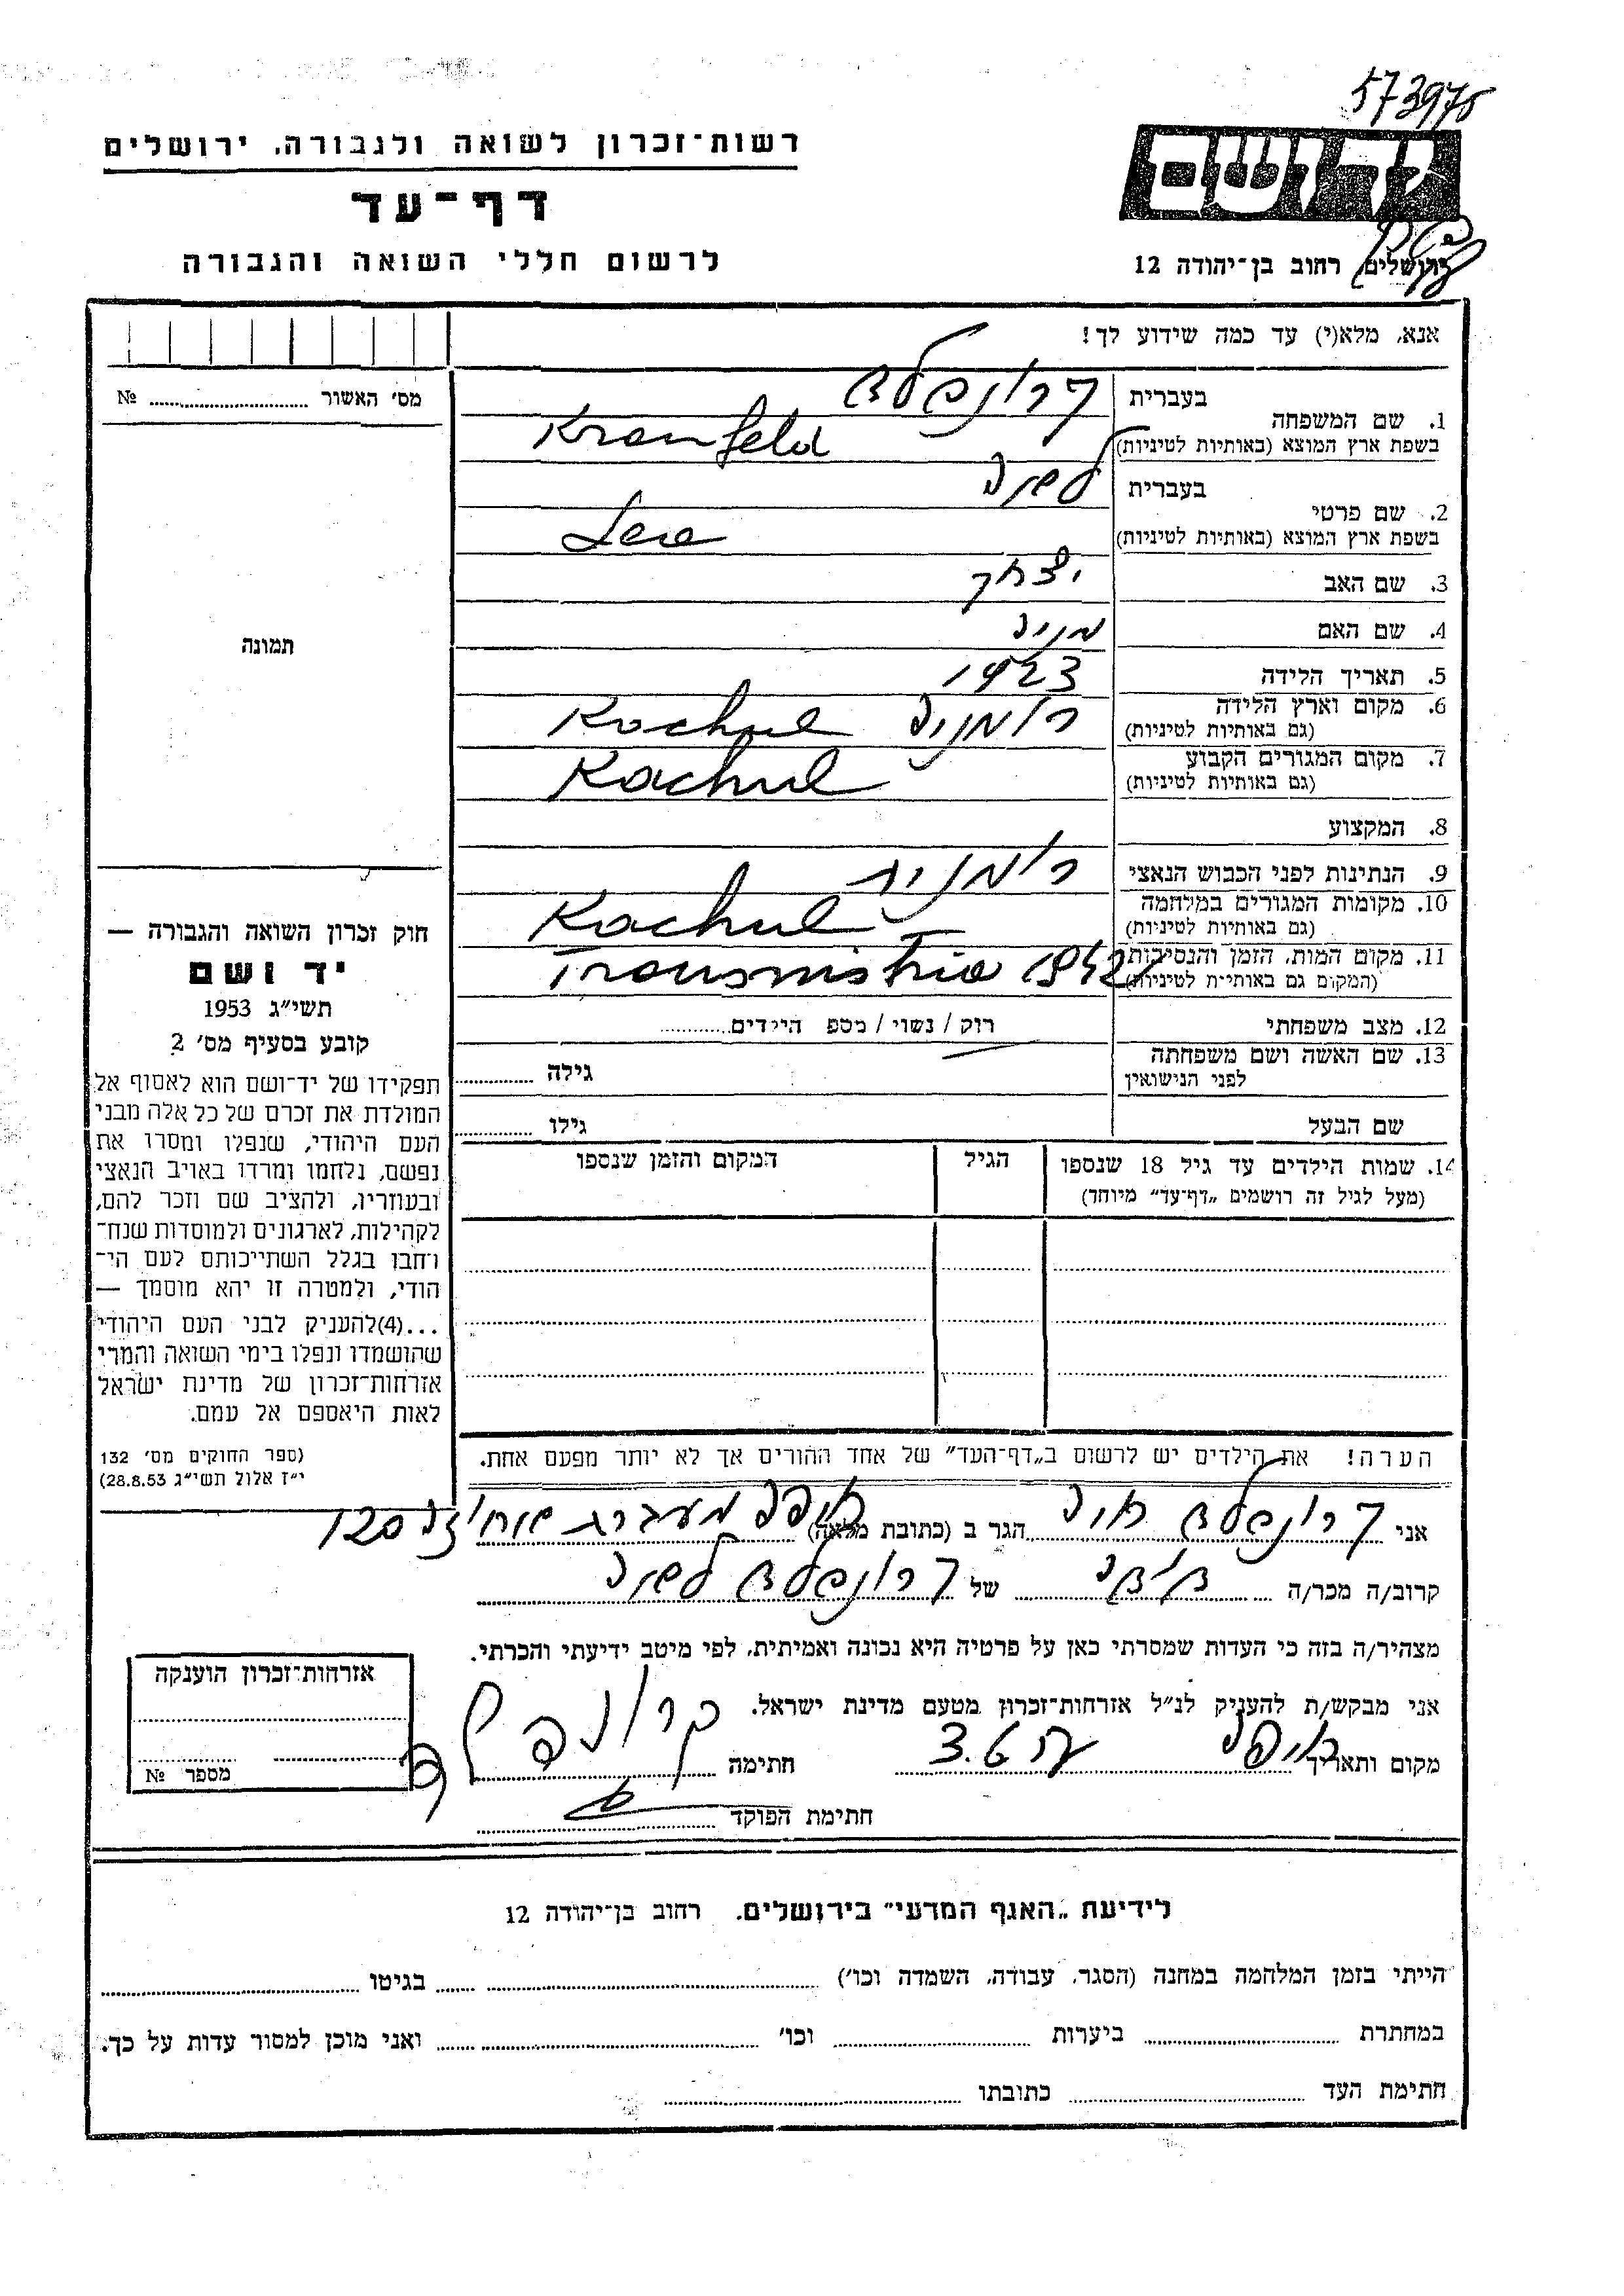 573975
רשות־זכרון לשואה ולגבורה, ירושלים
דף־עד
לרשום חללי השואה והגבורה
יד ושם
ירושלים, רחוב בן־יהודה 12
אנא, מלא(י) עד כמה שידוע לך!
מס׳ האשור № ........
1. שם המשפחה
בעברית קרונפלד
בשפת ארץ המוצא (באותיות לטיניות) Kronfeld
2. שם פרטי
בעברית
בשפת ארץ המוצא (באותיות לטיניות)
3. שם האב יצחק
4. שם האם מניה
5. תאריך הלידה 1923
6. מקום וארץ הלידה רומניה Kachul
(גם באותיות לטיניות)
7. מקום המגורים הקבוע Kachul
(גם באותיות לטיניות)
8. המקצוע
9. הנתינות לפני הכבוש הנאצי רומנית
10. מקומות המגורים במלחמה Kachul
(גם באותיות לטיניות)
11. מקום המות, הזמן והנסיבות Transnistria 1942
(המקום גם באותיות לטיניות)
12. מצב משפחתי רוק / נשוי / מספ הילדים ........
13. שם האשה ושם משפחתה לפני הנישואין גילה ........
שם הבעל גילו ........
14. שמות הילדים עד גיל 18 שנספו הגיל המקום והזמן שנספו
(מעל לגיל זה רושמים „דף־עד״ מיוחד)
הערה! את הילדים יש לרשום ב„דף־העד״ של אחד ההורים אך לא יותר מפעם אחת.
תמונה
חוק זכרון השואה והגבורה —
יד ושם
תשי״ג 1953
קובע בסעיף מס׳ 2
תפקידו של יד־ושם הוא לאסוף אל
המולדת את זכרם של כל אלה מבני
העם היהודי, שנפלו ומסרו את
נפשם, נלחמו ומרדו באויב הנאצי
ובעוזריו, ולהציב שם וזכר להם,
לקהילות, לארגונים ולמוסדות שנח־
רחבו בגלל השתייכותם לעם הי־
הודי, ולמטרה זו יהא מוסמך —
...(4)להעניק לבני העם היהודי
שהושמדו ונפלו בימי השואה והמרי
אזרחות־זכרון של מדינת ישראל
לאות היאספם אל עמם.
(ספר החוקים מס׳ 132
י״ז אלול תשי״ג 28.8.53)
אני קרונפלד הגר ב (כתובת מלאה) חיפה מעברת 120
קרוב/ה מכר/ה של קרונפלד
מצהיר/ה בזה כי העדות שמסרתי כאן על פרטיה היא נכונה ואמיתית, לפי מיטב ידיעתי והכרתי.
אני מבקש/ת להעניק לנ״ל אזרחות־זכרון מטעם מדינת ישראל.
מקום ותאריך חיפה 3.6 חתימה קרונפלד
חתימת הפוקד
אזרחות־זכרון הוענקה
מספר №
לידיעת „האגף המדעי״ בירושלים, רחוב בן־יהודה 12
הייתי בזמן המלחמה במחנה (הסגר, עבודה, השמדה וכו׳) ........ בגיטו ........
במחתרת ........ ביערות ........ וכו׳ ........ ואני מוכן למסור עדות על כך.
חתימת העד ........ כתובתו ........